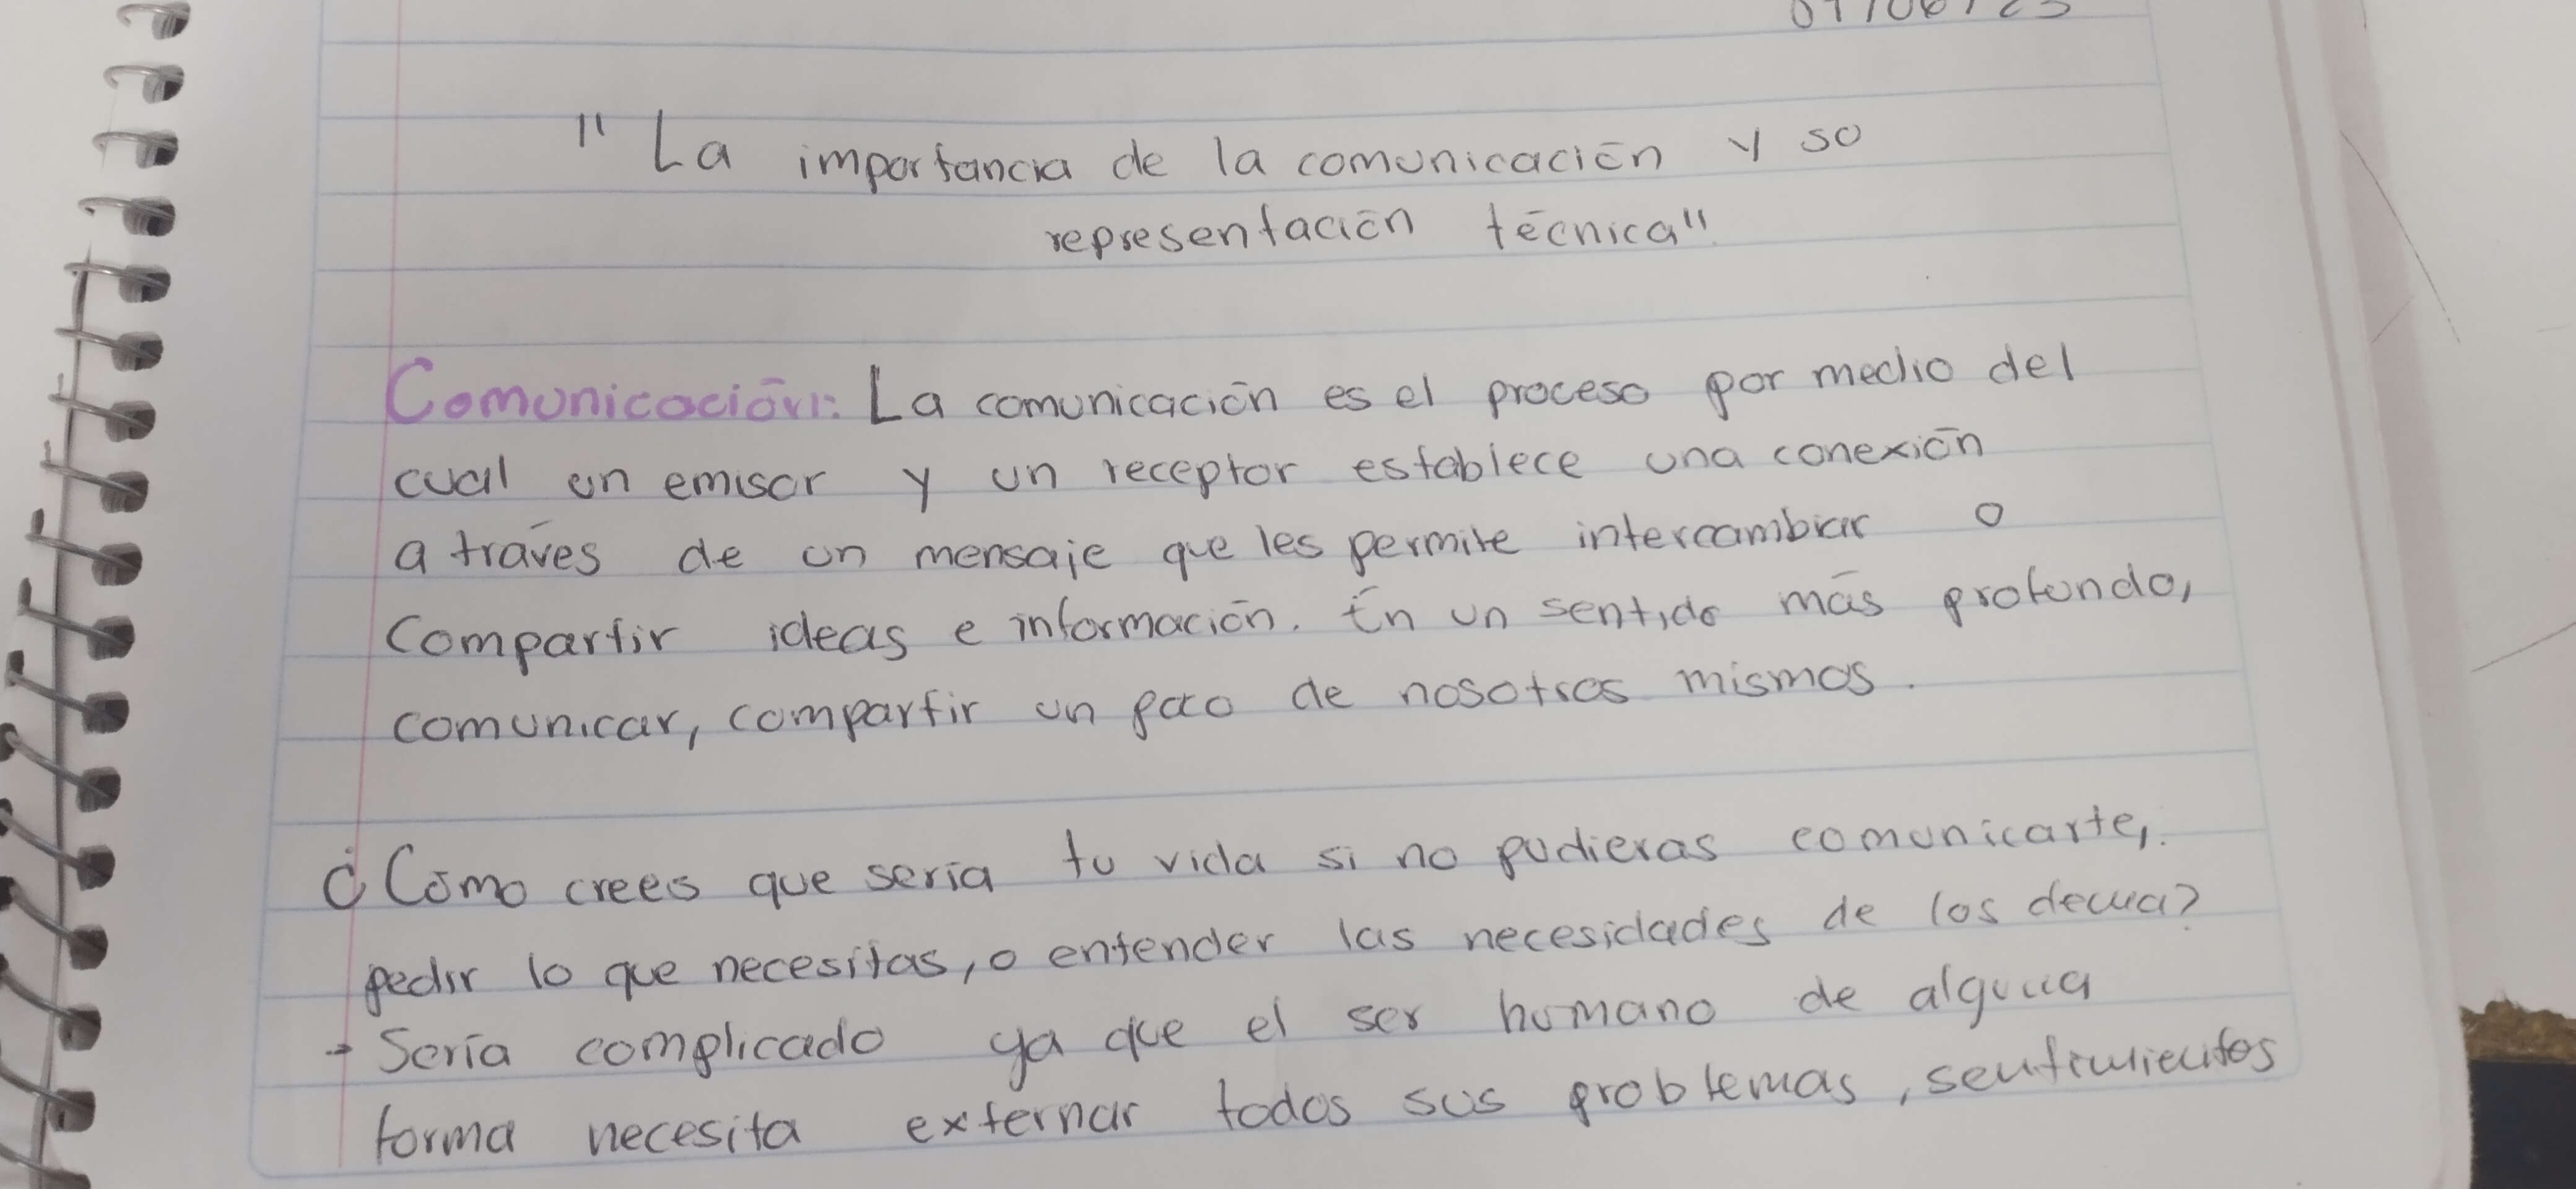 "La importancia de la comunicación y su
representación técnica"
Comunicación: La comunicación es el proceso por medio del
cual un emisor y un receptor establece una conexión
a través de un mensaje que les permite intercambiar o
Compartir ideas e información. En un sentido más profundo,
comunicar, compartir un poco de nosotros mismos.
¿Cómo crees que sería tu vida si no pudieras comunicarte,
pedir lo que necesitas, o entender las necesidades de los
- Sería complicado ya que el ser humano de alguna
forma necesita externar todos sus problemas, sentimientos